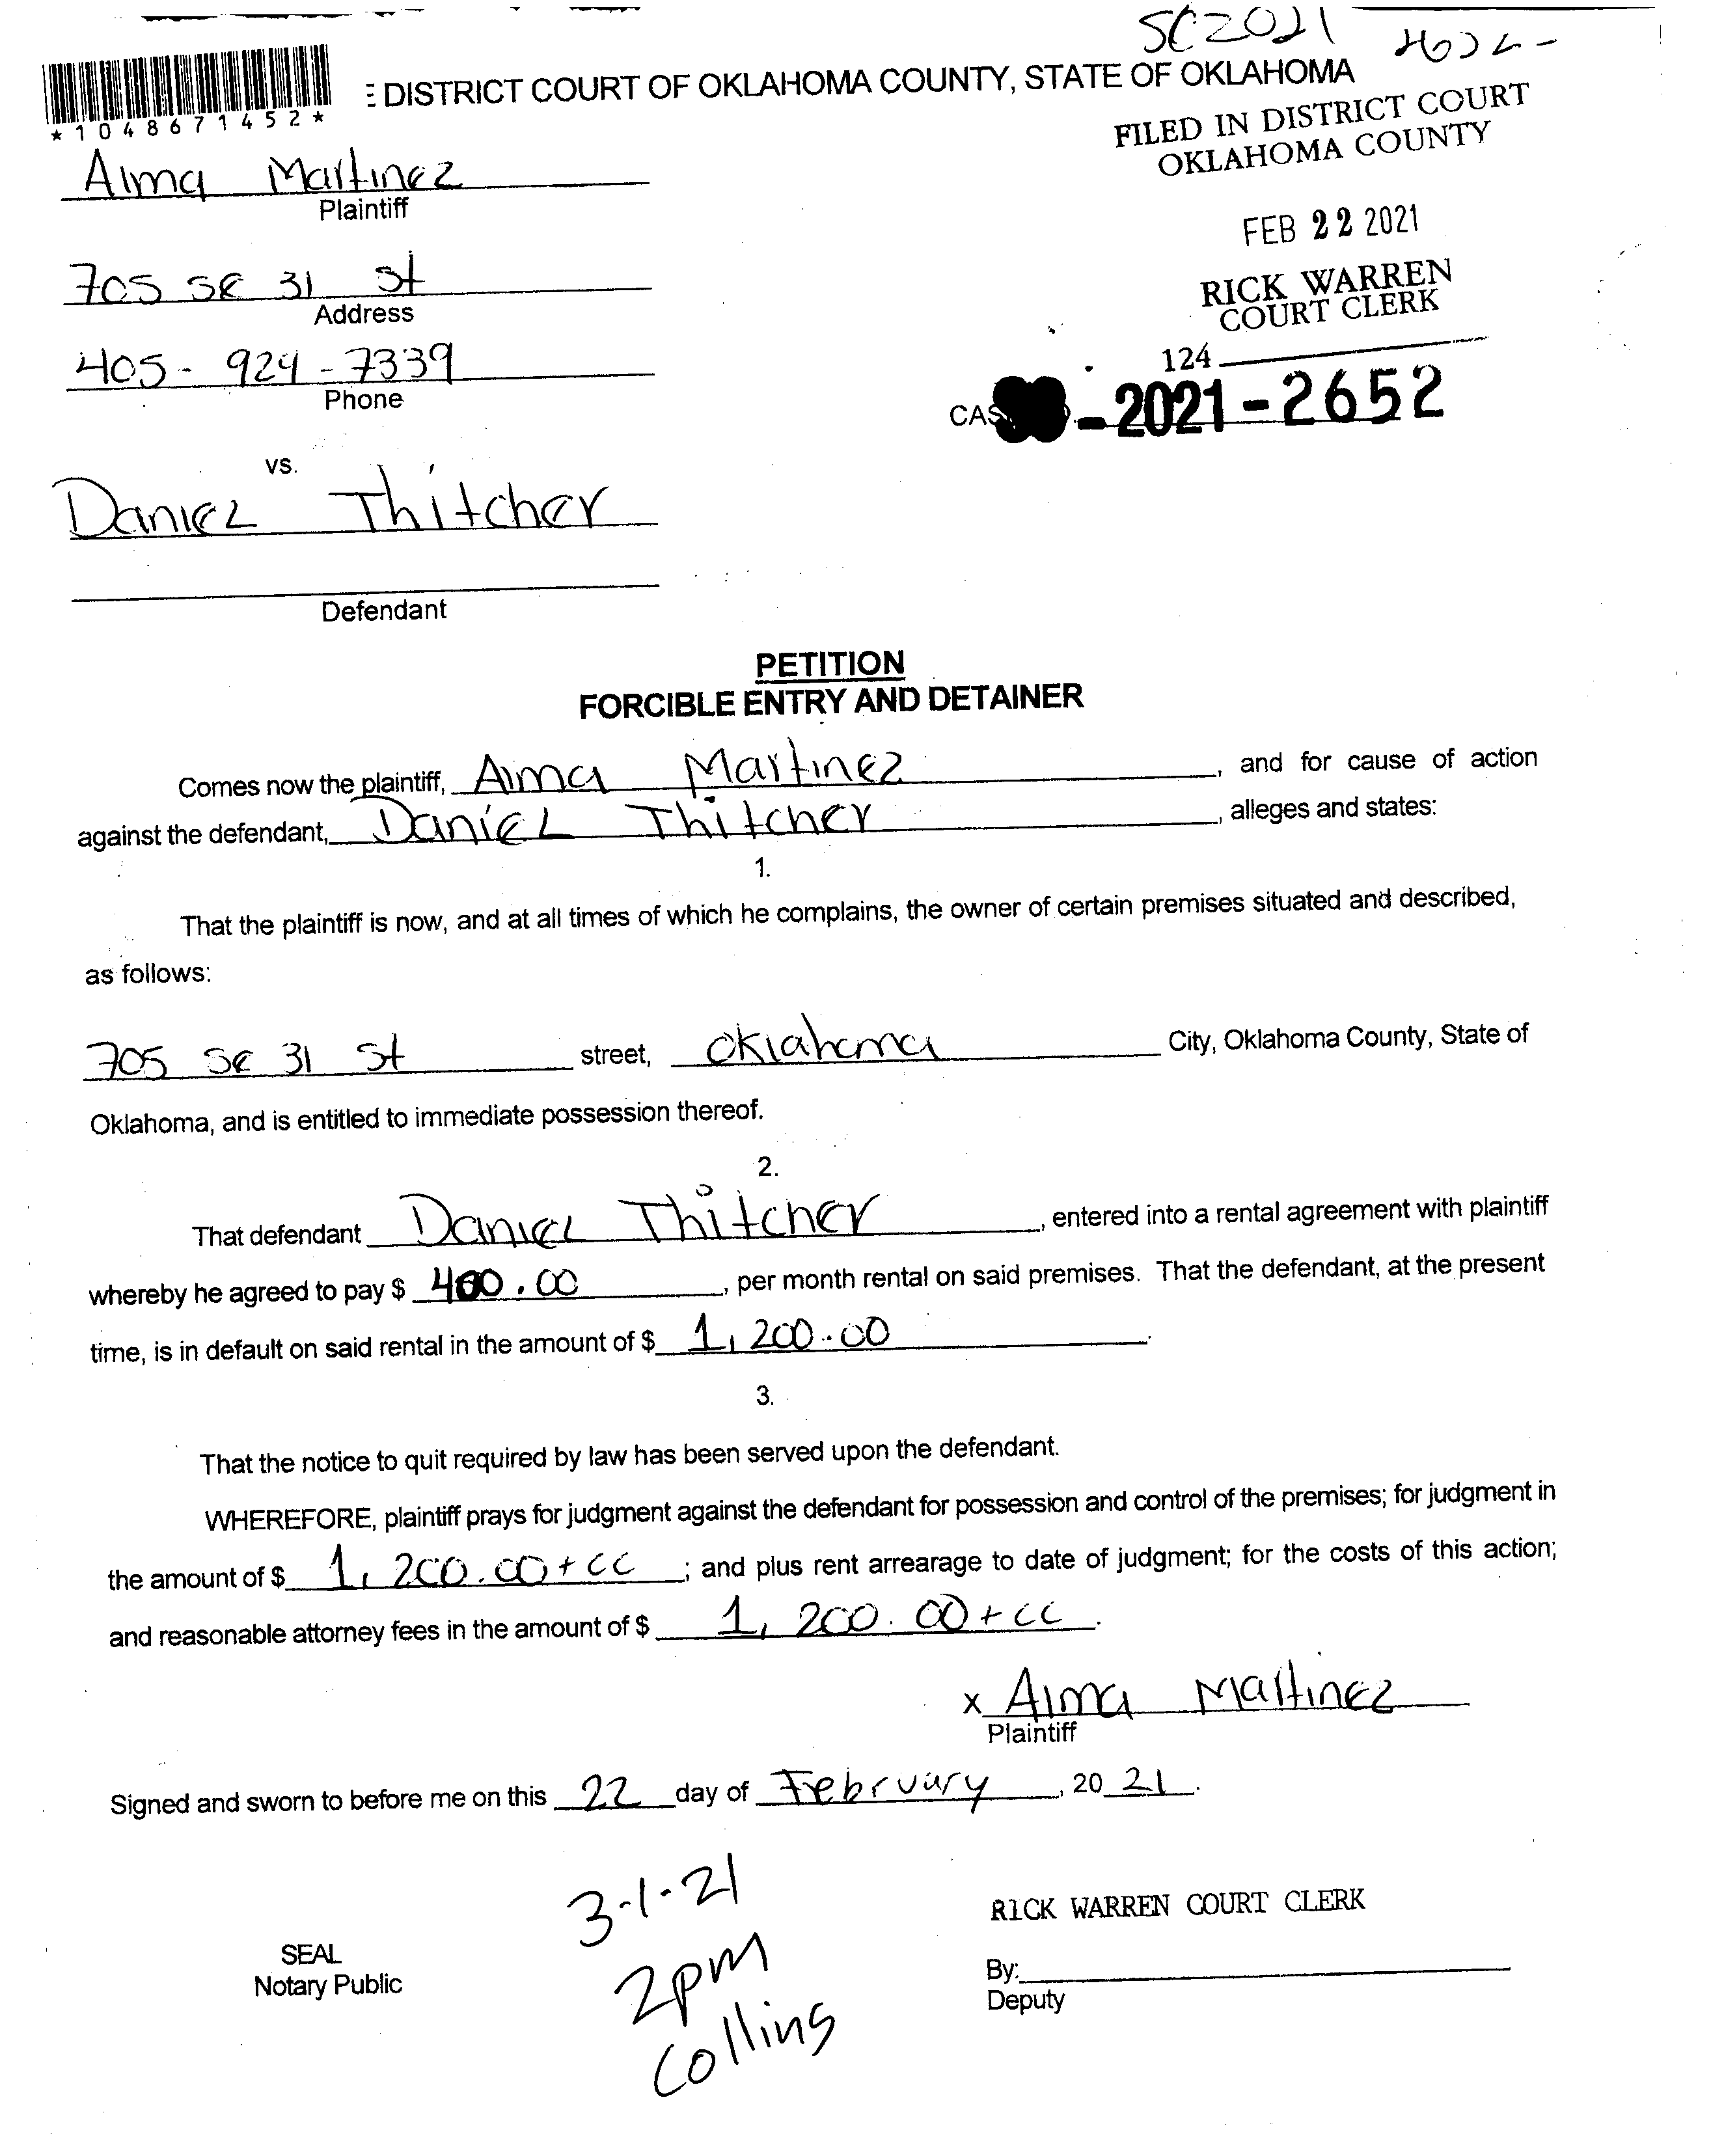 SC2021
*1048671452*
E DISTRICT COURT OF OKLAHOMA COUNTY, STATE OF OKLAHOMA
FILED IN DISTRICT COURT
OKLAHOMA COUNTY
Alma Martinez
Plaintiff
FEB 22 2021
705 SE 31 St
Address
RICK WARREN
COURT CLERK
405-924-7339
Phone
124
CAS -2021-2652
vs.
Daniel Thitcher
Defendant
PETITION
FORCIBLE ENTRY AND DETAINER
Comes now the plaintiff, Alma Martinez, and for cause of action
against the defendant, Daniel Thitcher, alleges and states:
1.
That the plaintiff is now, and at all times of which he complains, the owner of certain premises situated and described,
as follows:
705 SE 31 St street, Oklahoma City, Oklahoma County, State of
Oklahoma, and is entitled to immediate possession thereof.
2.
That defendant Daniel Thitcher, entered into a rental agreement with plaintiff
whereby he agreed to pay $ 400.00, per month rental on said premises. That the defendant, at the present
time, is in default on said rental in the amount of $ 1,200.00.
3.
That the notice to quit required by law has been served upon the defendant.
WHEREFORE, plaintiff prays for judgment against the defendant for possession and control of the premises; for judgment in
the amount of $ 1,200.00+cc; and plus rent arrearage to date of judgment; for the costs of this action;
and reasonable attorney fees in the amount of $ 1,200.00+cc.
x Alma Martinez
Plaintiff
Signed and sworn to before me on this 22 day of February, 20 21.
3-1-21
2pm
Collins
RICK WARREN COURT CLERK
SEAL
Notary Public
By:
Deputy